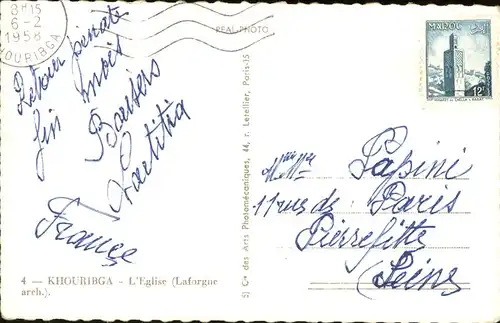 8H15
6-2
1958
KHOURIBGA
REAL-PHOTO
MAROC
12F
Retour
fin mois
Baisers
Laetitia
France
Papini
11 rue de Paris
Pierrefitte
(Seine)
4 — KHOURIBGA - L'Eglise (Laforgue
arch.).
Cie des Arts Photomécaniques, 44, r. Letellier, Paris-15